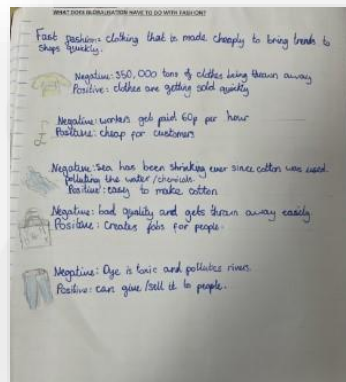 WHAT DOES GLOBALISATION HAVE TO DO WITH FASHION?
Fast fashion: clothing that is made cheaply to bring trends to
shops quickly.
Negative: 350,000 tons of clothes being thrown away
Positive: clothes are getting sold quickly
Negative: workers get paid 60p per hour
Positive: cheap for customers
Negative: Sea has been shrinking ever since cotton was used.
polluting the water/chemicals.
Positive: easy to make cotton
Negative: bad quality and gets thrown away easily
Positive: creates jobs for people.
Negative: Dye is toxic and pollutes rivers.
Positive: can give/sell it to people.